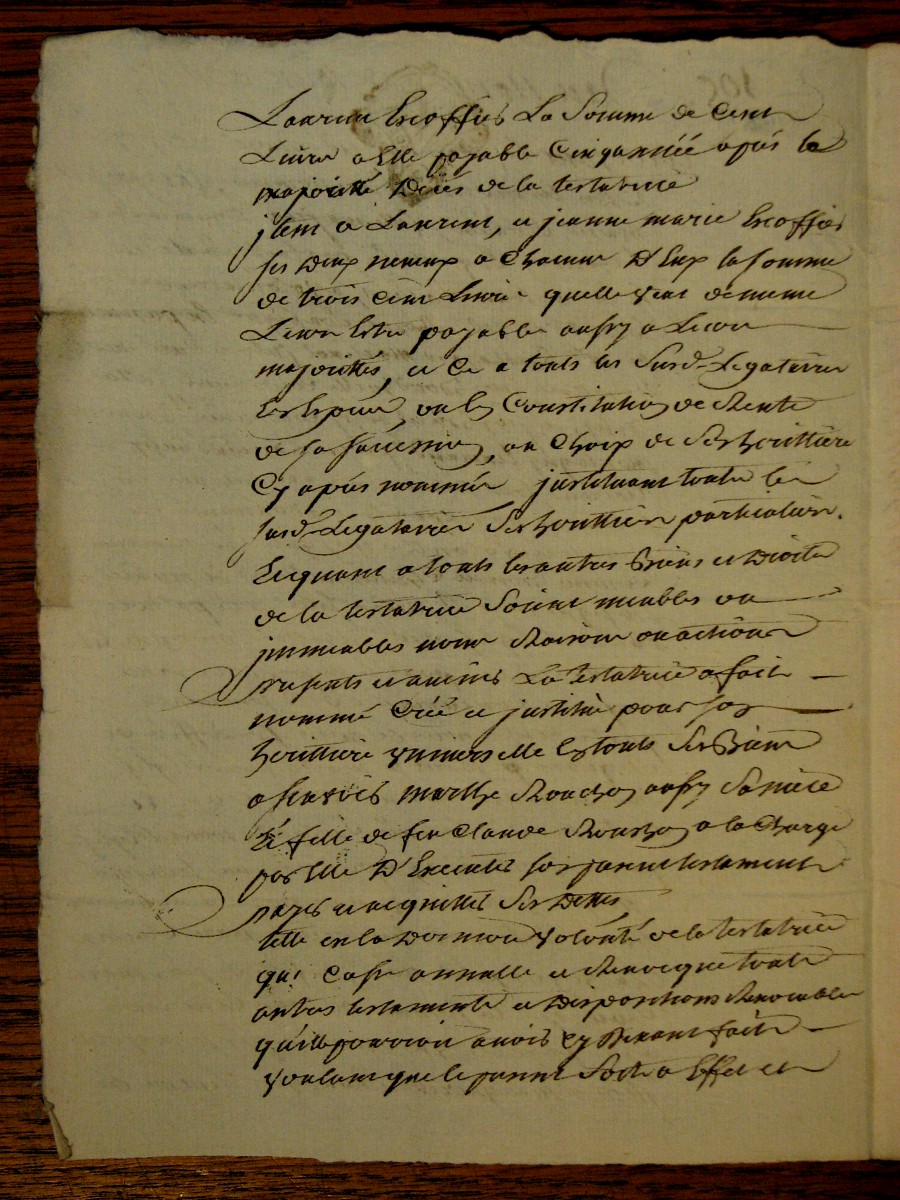 Laurent Escoffier La Somme de Cent
Livre a Elle payable Cinq année apres la
majorité deces de la testatrice
jtem a Laurent, et jeanne marie Escoffier
ses deux neveux a Chacun D'Eux la somme
de trois Cent Livre quelle veut de meme
Leurs Estre payable aussy a Leur
majorittés, et Ce a touts les susd. Legataires
En Espece, ou En Constitution de Rente
de sa succession, au Choix de ses heritiere
Cy apres nommée jnstituant touts les
susd. Legataires ses heritiers particuliers.
Et quant a touts les autres Biens et Droits
de la testatrice Soient meubles ou
jmmeubles noms Raisons ou actions
presents et avenirs La testatrice a fait
nommé Créé et jnstitué pour son
heritiere universelle En touts ses Biens
a sçavoir marthe Rouchon aussy sa niece
Et fille de feu Claude Rouchon a la Charge
par Elle D'Executer son present testament
payer et acquitter ses Dettes
telle est la Derniere volonté de la testatrice
qui Casse annulle et Revocque touts
autres testaments et Dispositions Revocables
qu'elle pourroit avoir Cy devant fait
voulant que le present sorte a Effet et